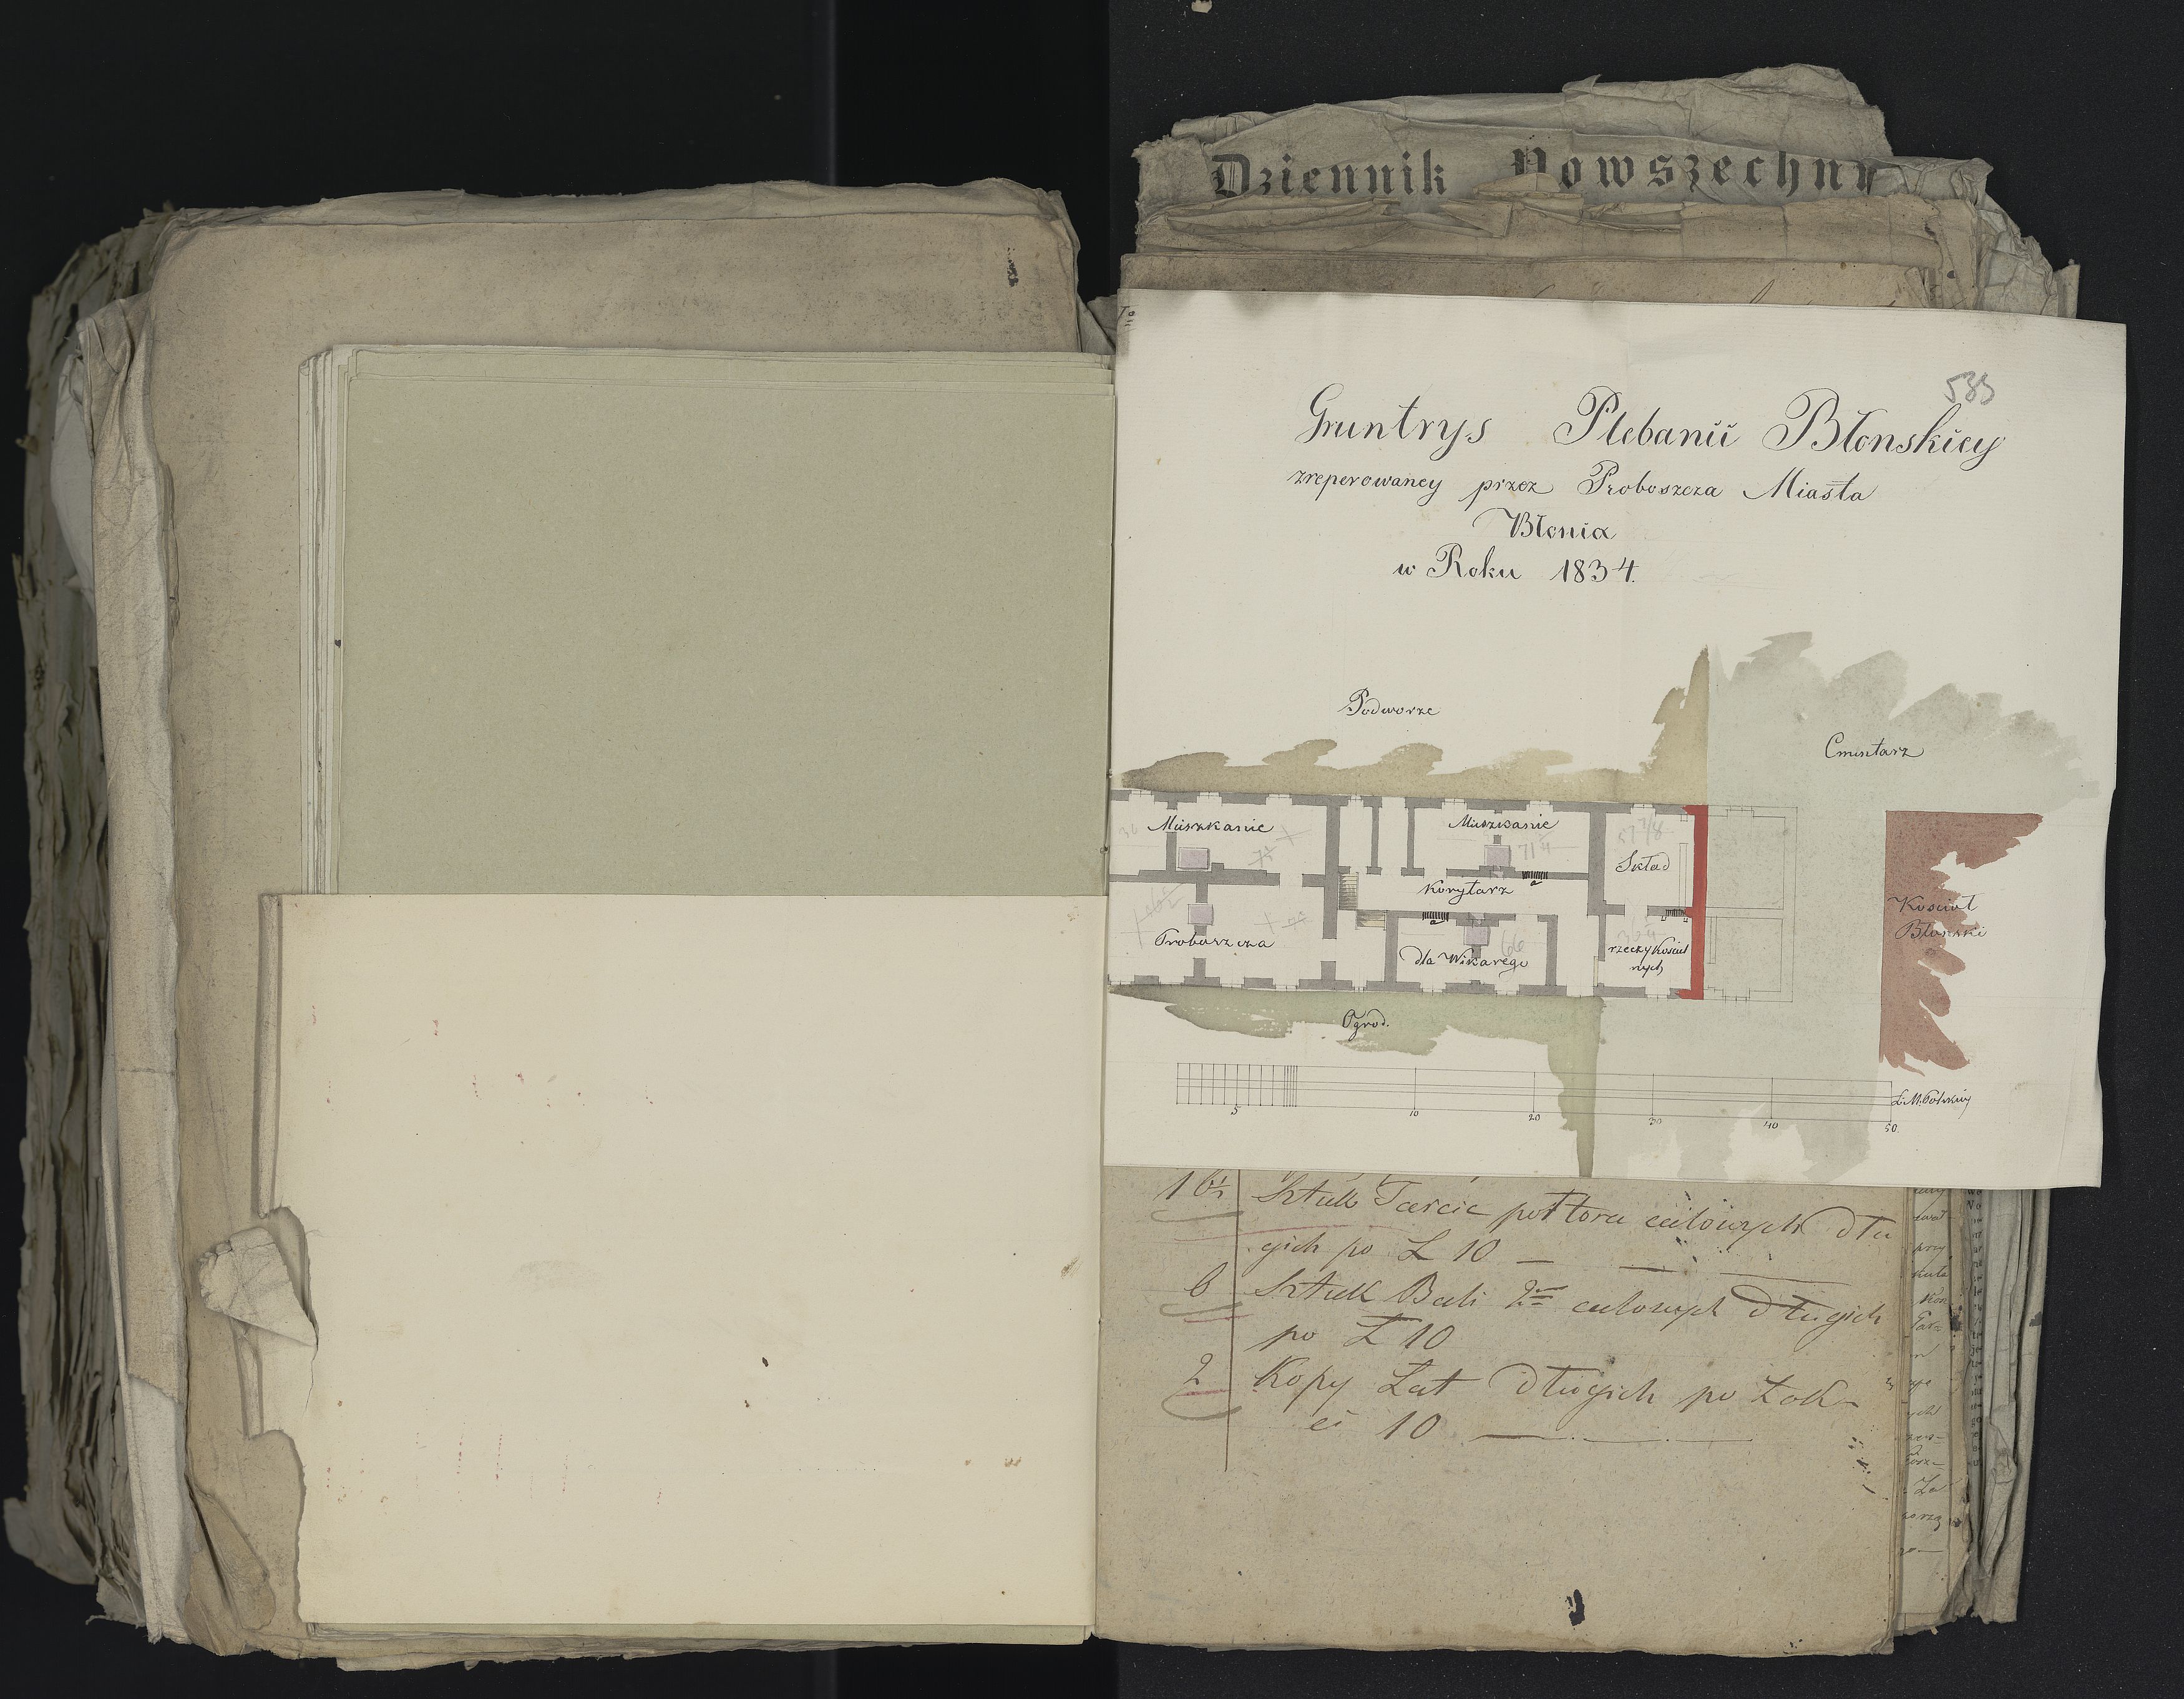 Dziennik Powszechny
585
Gruntrys Plebanii Błonskiey
zreperowaney przez Proboszcza Miasta
Błonia
w Roku 1834.
Podworze
Cmentarz
Mieszkanie
Mieszkanie
71 4
57 7/8
Skład
Korytarz
a
a
Kosciół
Błonski
Proboszcza
dla Wikarego
66
rzeczy Kosciel
nych
Ogrod.
5 10 20 30 40 50.
Sztuk Tarcic połtora calowych dłu
gich po Ł 10 —
6 Sztuk Bali calowych długich
po Ł 10
2 Kopy Łat długich po Łok-
ci 10 —